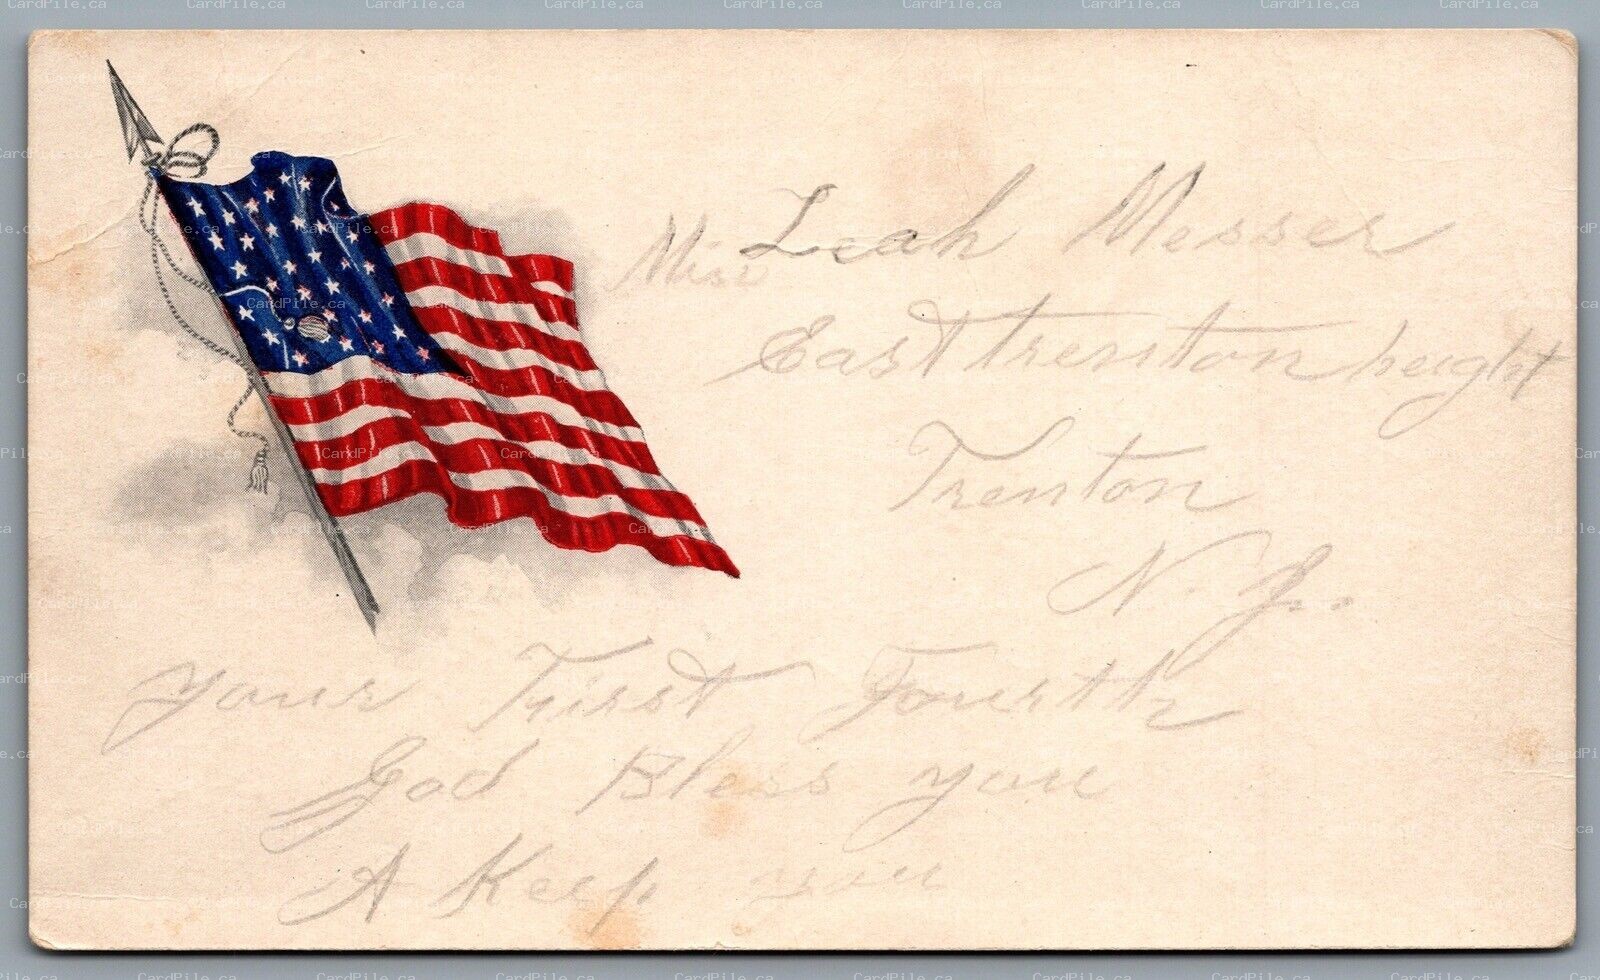 Miss Leah Messer
East trenton height
Trenton
N. J.
your First Fourth
God Bless you
A Keep you
CardPile.ca